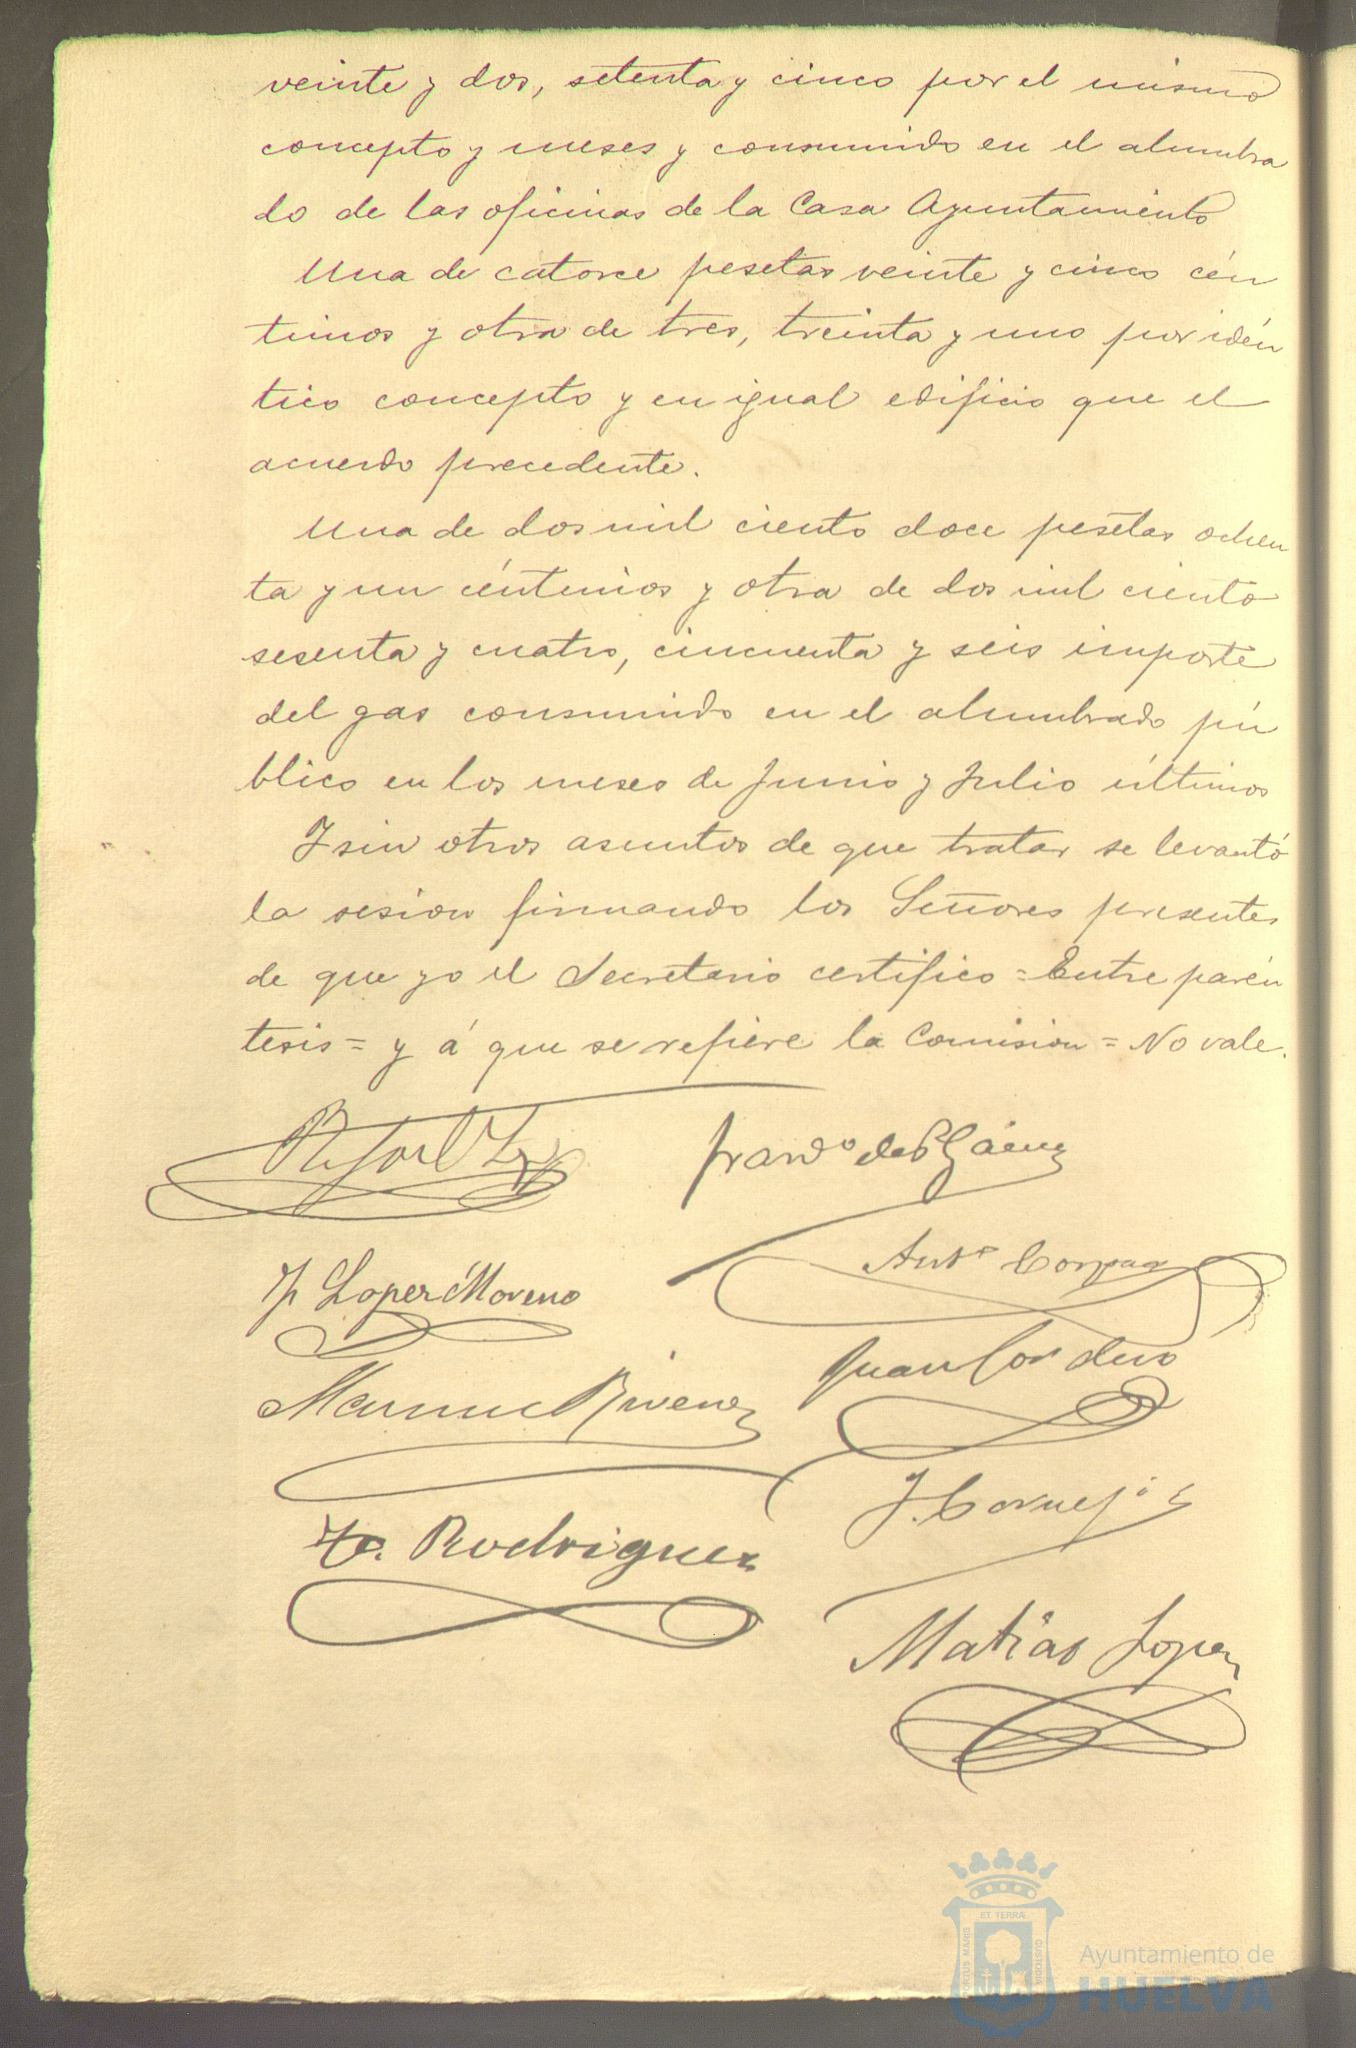 veinte y dos, setenta y cinco por el mismo
concepto y meses y consumido en el alumbra
do de las oficinas de la Casa Ayuntamiento
Una de catorce pesetas veinte y cinco cén
timos y otra de tres, treinta y uno por idén
tico concepto y en igual edificio que el
acuerdo precedente.
Una de dos mil ciento doce pesetas ochen
ta y un céntimos y otra de dos mil ciento
sesenta y cuatro, cincuenta y seis importe
del gas consumido en el alumbrado pú
blico en los meses de Junio y Julio últimos
Y sin otros asuntos de que tratar se levantó
la sesion firmando los Señores presentes
de que yo el Secretario certifico = Entre parén
tesis = y á que se refiere la Comision = No vale.
Lopez Moreno
Manuel Rivera
Juan Cordero
J. Cornejo
Rodriguez
Matias Lopez
ET TERRÆ
PORTUS MARIS
CUSTODIA
Ayuntamiento de
HUELVA